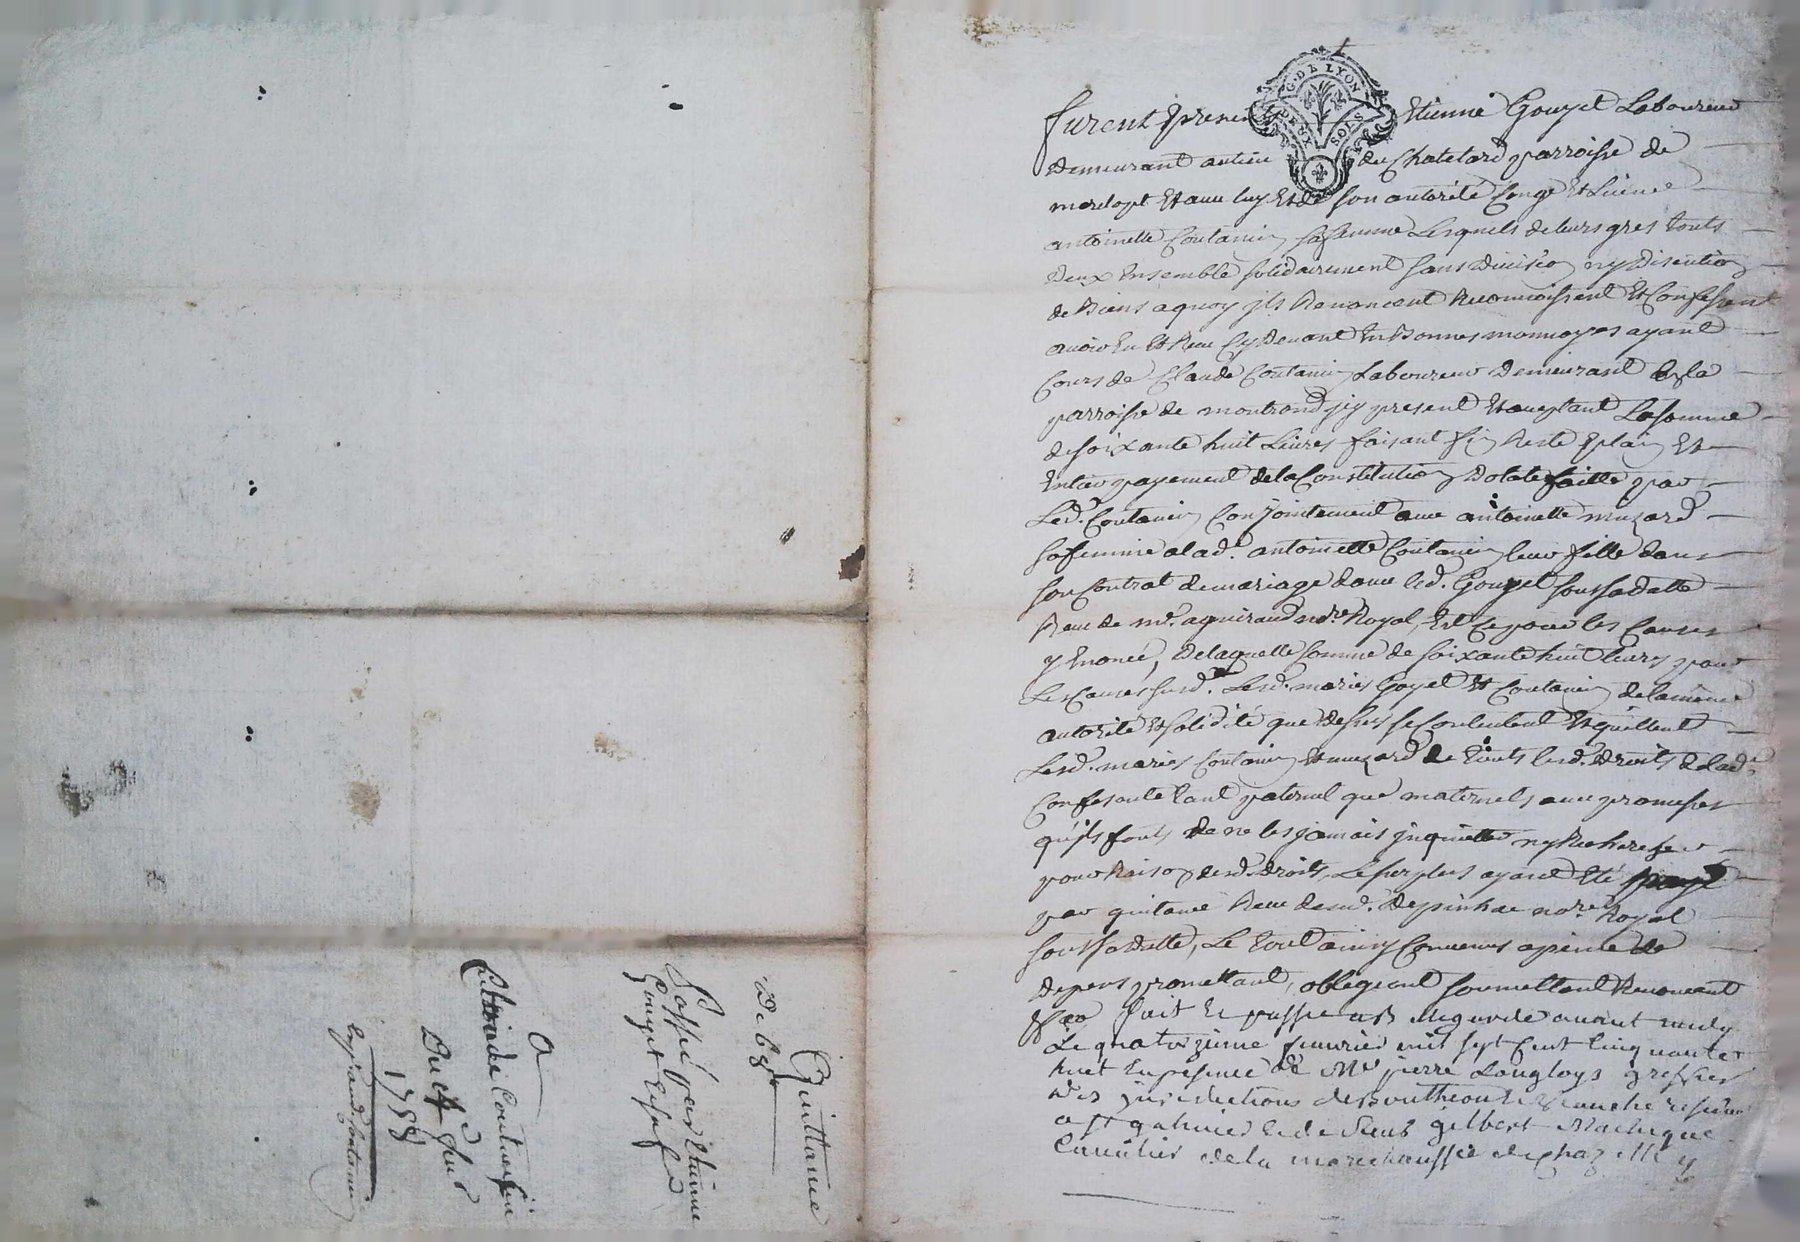 G. DE LYON
DEUX SOLS
furent presen Etienne Gouyet Laboureur
demeurant au lieu du Chatelard parroisse de
et avec luy et de son autorité Congé et Licence
antoinette Coutanin sa femme Lesquels de leurs gres touts
deux Ensemble solidairement sans Division ny Discution
de Biens a quoy ils Renoncent Reconnoissent et Confessent
avoir Eu et Receu Cy Devant En Bonnes monnoyes ayant
Cours de Claude Coutanin Laboureur Demeurant la
parroisse de montrond jcy present et aceptant La somme
de soixante huit Livres faisant fin Reste plain et
Entier payement de la Constitution Dotale faitte par
Led. Coutanin Conjointement avec antoinette muzard
sa femme a lad. antoinette Coutanin leur fille dans
son Contrat de mariage d'avec led. Gouyet sous sa datte
Receu de me. aguiraud nore. Royal, Et Ce pour les Causes
y Enoncé, De laquelle somme de soixante huit livres pour
Les Causes susd. Lesd. mariés Goyet et Coutanin de la meme
autorité et solidité que dessus se Contentent et quittent
Lesd. mariés Coutanin et muzard de touts lesd. Droits de lad.
Confesante tant paternel que maternels avec promesses
qu'ils fonts de ne les jamais jnquietter ny Rechercher
pour Raison desd. Droits, Le surplus ayant Eté payé
par quitance Receu dud. Depinhac nore. Royal
sous sa Datte, Le tout ainsy Convenus a peine de
depens promettant, obligeant soumettant Renonceant
fait et passé avant midy
Le quatorzieme feuvrier mil sept Cent Cinquante
huit En presence de Me pierre Langloys greffier
des jurisdictions de Boutheon
a st galmier et de Sieur gilbert
Cavalier de la marechaussée de chazelle
Quittance
De 68
Passée par Etienne
Gouyet Et sa f
a
Claude Coutansin
Du 14 fevr
1758